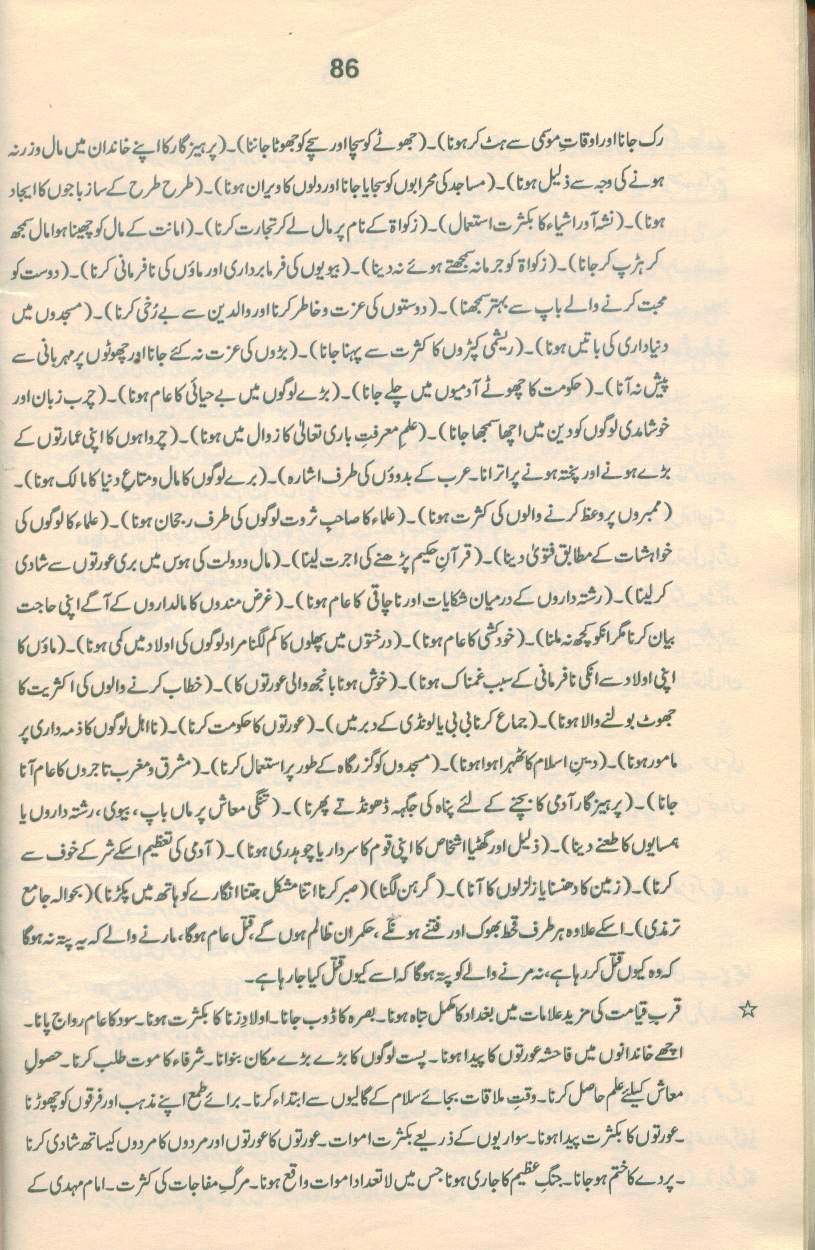 86
رک جانا اور اوقاتِ موسمی سے ہٹ کر ہونا)۔(جھوٹے کو سچا اور سچے کو جھوٹا جاننا)۔(پرہیزگار کا اپنے خاندان میں مال و زر نہ
ہونے کی وجہ سے ذلیل ہونا)۔(مساجد کی محرابوں کو سجایا جانا اور دلوں کا ویران ہونا)۔(طرح طرح کے ساز باجوں کا ایجاد
ہونا)۔(نشہ آور اشیاء کا بکثرت استعمال)۔(زکواۃ کے نام پر مال لے کر تجارت کرنا)۔(امانت کے مال کو چھینا ہوا مال سمجھ
کر ہڑپ کر جانا)۔(زکواۃ کو جرمانہ سمجھتے ہوئے نہ دینا)۔(بیویوں کی فرمابرداری اور ماؤں کی نافرمانی کرنا)۔(دوست کو
محبت کرنے والے باپ سے بہتر سمجھنا)۔(دوستوں کی عزت و خاطر کرنا اور والدین سے بے رُخی کرنا)۔(مسجدوں میں
دنیاداری کی باتیں ہونا)۔(ریشمی کپڑوں کا کثرت سے پہنا جانا)۔(بڑوں کی عزت نہ کئے جانا اور چھوٹوں پر مہربانی سے
پیش نہ آنا)۔(حکومت کا چھوٹے آدمیوں میں چلے جانا)۔(بڑے لوگوں میں بے حیائی کا عام ہونا)۔(چرب زبان اور
خوشامدی لوگوں کو دین میں اچھا سمجھا جانا)۔(علمِ معرفتِ باری تعالیٰ کا زوال میں ہونا)۔(چرواہوں کا اپنی عمارتوں کے
بڑے ہونے اور پختہ ہونے پر اترانا۔عرب کے بدوؤں کی طرف اشارہ)۔(برے لوگوں کا مال و متاعِ دنیا کا مالک ہونا)۔
(ممبروں پر وعظ کرنے والوں کی کثرت ہونا)۔(علماء کا صاحبِ ثروت لوگوں کی طرف رجحان ہونا)۔(علماء کا لوگوں کی
خواہشات کے مطابق فتویٰ دینا)۔(قرآنِ حکیم پڑھنے کی اجرت لینا)۔(مال و دولت کی ہوس میں بری عورتوں سے شادی
کر لینا)۔(رشتہ داروں کے درمیان شکایات اور ناچاقی کا عام ہونا)۔(غرض مندوں کا مالداروں کے آگے اپنی حاجت
بیان کرنا مگر انکو کچھ نہ ملنا)۔(خودکشی کا عام ہونا)۔(درختوں میں پھلوں کا کم لگنا مراد لوگوں کی اولاد میں کمی ہونا)۔(ماؤں کا
اپنی اولاد سے انکی نافرمانی کے سبب غمناک ہونا)۔(خوش ہونا بانجھ والی عورتوں کا)۔(خطاب کرنے والوں کی اکثریت کا
جھوٹ بولنے والا ہونا)۔(جماع کرنا بی بی یا لونڈی کے دبر میں)۔(عورتوں کا حکومت کرنا)۔(نااہل لوگوں کا ذمہ داری پر
مامور ہونا)۔(دینِ اسلام کا ٹھہرا ہوا ہونا)۔(مسجدوں کو گزرگاہ کے طور پر استعمال کرنا)۔(مشرق و مغرب تاجروں کا عام آنا
جانا)۔(پرہیزگار آدمی کا بچنے کے لئے پناہ کی جگہہ ڈھونڈتے پھرنا)۔(تنگی معاش پر ماں باپ، بیوی، رشتہ داروں یا
ہمسایوں کا طعنے دینا)۔(ذلیل اور گھٹیا اشخاص کا اپنی قوم کا سردار یا چوہدری ہونا)۔(آدمی کی تعظیم اسکے شر کے خوف سے
کرنا)۔(زمین کا دھنسنا یا زلزلوں کا آنا)۔(گرہن لگنا)(صبر کرنا اتنا مشکل جتنا انگارے کو ہاتھ میں پکڑنا)(بحوالہ جامع
ترمذی)۔اسکے علاوہ ہر طرف قحط بھوک اور فتنے ہونگے، حکمران ظالم ہوں گے، قتل عام ہوگا، مارنے والے کہ یہ پتہ نہ ہوگا
کہ وہ کیوں قتل کر رہا ہے، نہ مرنے والے کو پتہ ہوگا کہ اسے کیوں قتل کیا جا رہا ہے۔
☆ قربِ قیامت کی مزید علامات میں بغداد کا مکمل تباہ ہونا۔بصرہ کا ڈوب جانا۔اولادِ زنا کا بکثرت ہونا۔سود کا عام رواج پانا۔
اچھے خاندانوں میں فاحشہ عورتوں کا پیدا ہونا۔پست لوگوں کا بڑے بڑے مکان بنوانا۔شرفاء کا موت طلب کرنا۔حصولِ
معاش کیلئے علم حاصل کرنا۔وقتِ ملاقات بجائے سلام کے گالیوں سے ابتداء کرنا۔برائے طمع اپنے مذہب اور فرقوں کو چھوڑنا
۔عورتوں کا بکثرت پیدا ہونا۔سواریوں کے ذریعے بکثرت اموات۔عورتوں کا عورتوں اور مردوں کا مردوں کیساتھ شادی کرنا
۔پردے کا ختم ہو جانا۔جنگِ عظیم کا جاری ہونا جس میں لاتعداد اموات واقع ہونا۔مرگِ مفاجات کی کثرت۔امام مہدی کے